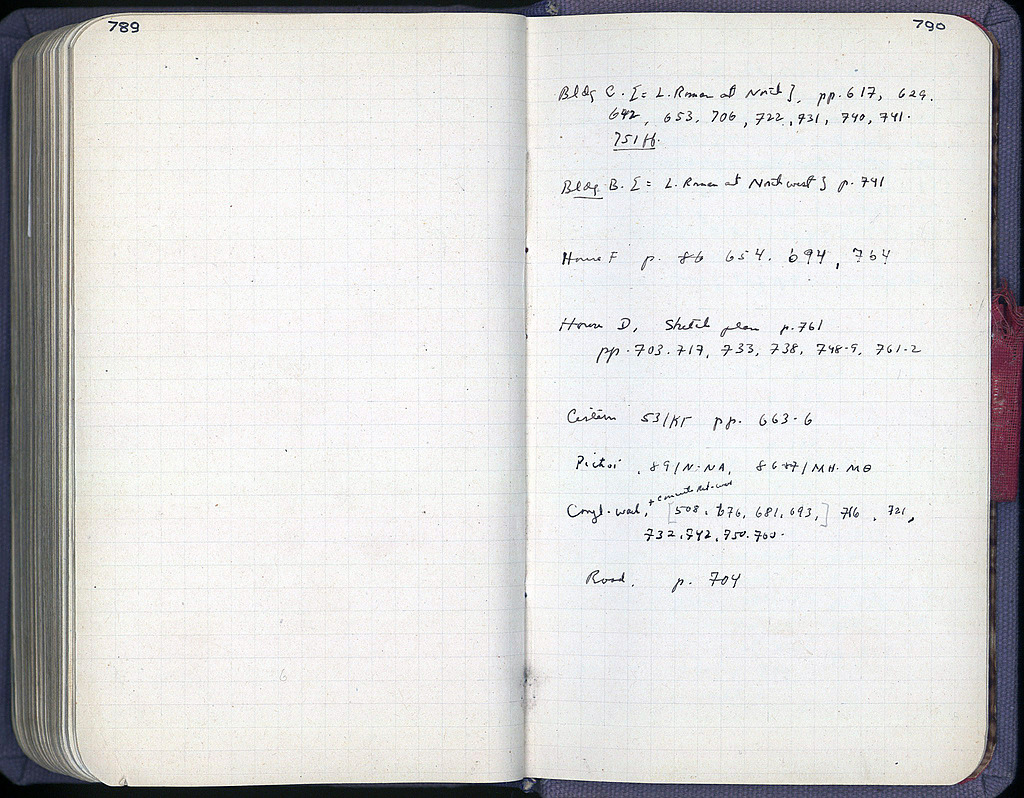 789
790
Bldg C. [= L. Roman at North], pp. 617, 629.
642, 653, 706, 722, 731, 740, 741.
751 ff.
Bldg B. [= L. Roman at Northwest] p. 741
House F p. 86 654. 694, 764
House D, Sketch plan p. 761
pp. 703. 717, 733, 738, 748-9, 761-2
Cistern 53/ΚΓ pp. 663-6
Pithoi, 89/Ν-ΝΑ, 86-87/ΜΗ-ΜΘ
+ concrete
Congl. wall, [508, 676, 681, 693,] 716, 721,
732, 742, 750. 760.
Road, p. 704